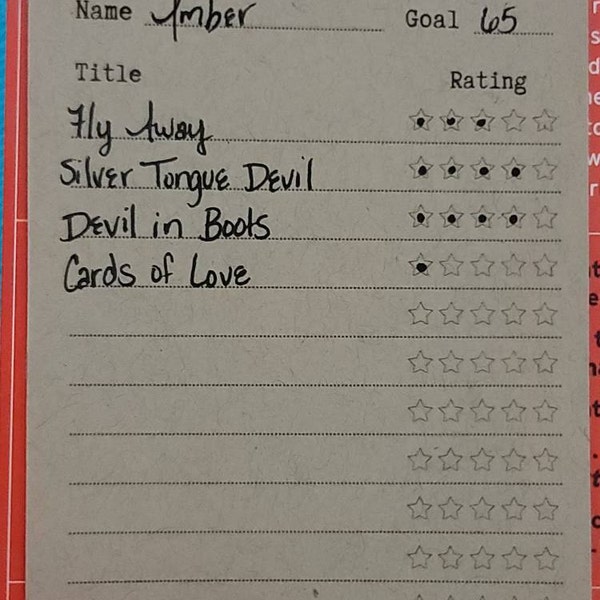 Name Amber Goal 65
Title Rating
Fly Away
Silver Tongue Devil
Devil in Boots
Cards of Love